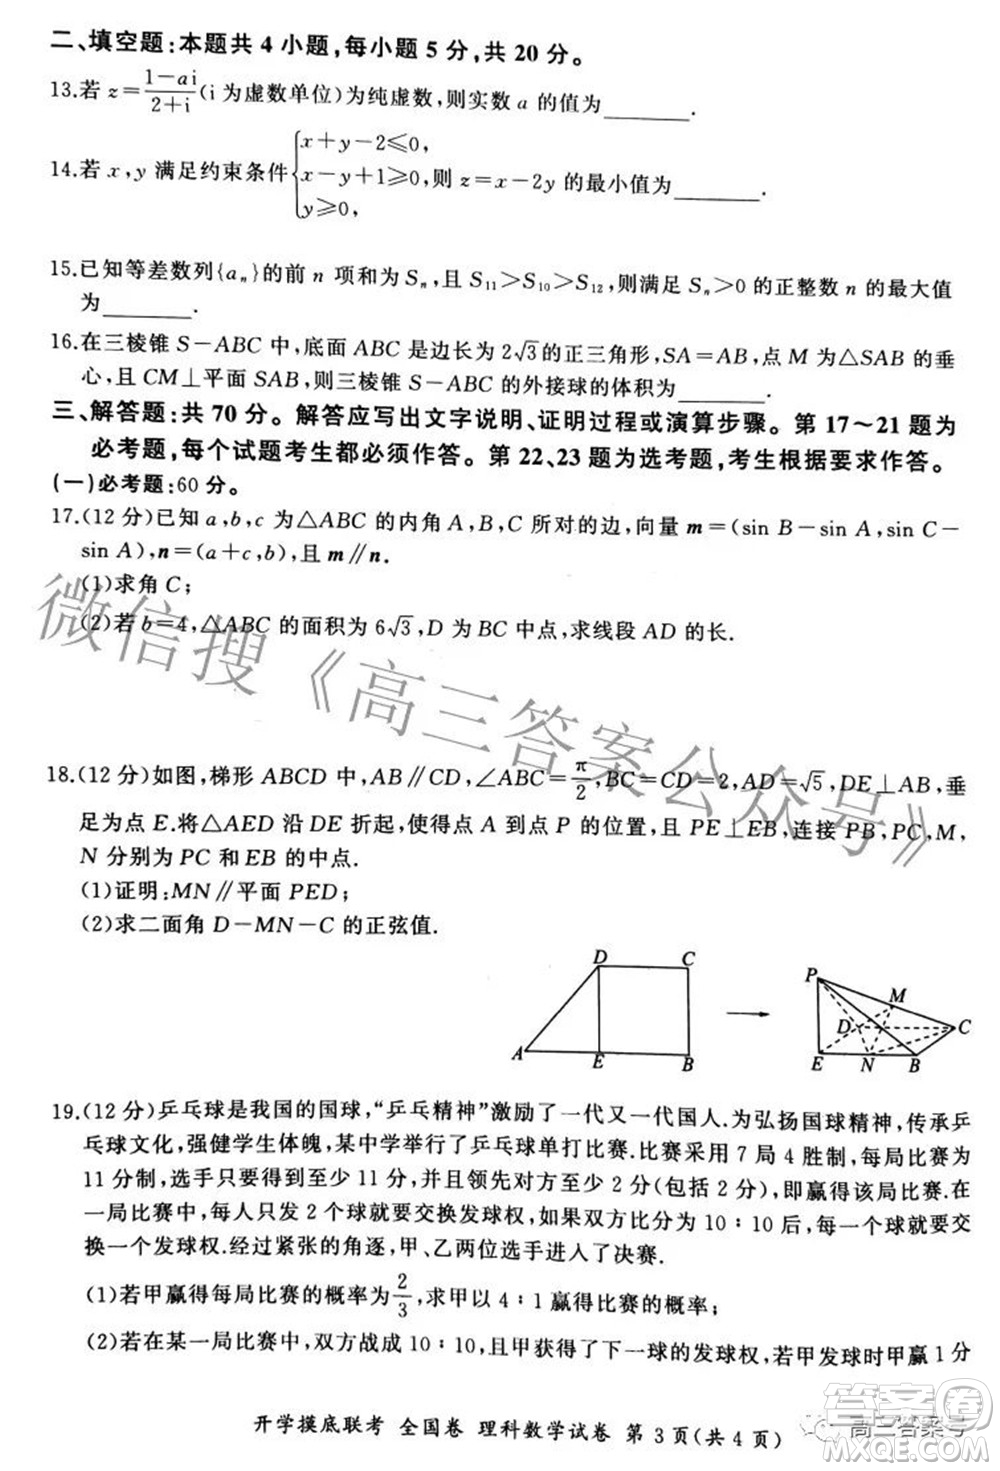 二、填空题:本题共 4 小题,每小题 5 分,共 20 分。
13.若 z=\frac{1-ai}{2+i}(i 为虚数单位)为纯虚数,则实数 a 的值为________.
14.若 x,y 满足约束条件{x+y-2⩽0, x-y+1⩾0, y⩾0, 则 z=x-2y 的最小值为________.
15.已知等差数列{aₙ}的前 n 项和为 Sₙ,且 S₁₁>S₁₀>S₁₂,则满足 Sₙ>0 的正整数 n 的最大值
为________.
16.在三棱锥 S-ABC 中,底面 ABC 是边长为 2√3的正三角形,SA=AB,点 M 为△SAB 的垂
心,且 CM⊥平面 SAB,则三棱锥 S-ABC 的外接球的体积为________.
三、解答题:共 70 分。解答应写出文字说明、证明过程或演算步骤。第 17～21 题为
必考题,每个试题考生都必须作答。第 22、23 题为选考题,考生根据要求作答。
(一)必考题:60 分。
17.(12 分)已知 a,b,c 为△ABC 的内角 A,B,C 所对的边,向量 m=(sin B-sin A,sin C-
sin A),n=(a+c,b),且 m∥n.
(1)求角 C;
(2)若 b=4,△ABC 的面积为 6√3,D 为 BC 中点,求线段 AD 的长.
18.(12 分)如图,梯形 ABCD 中,AB∥CD,∠ABC=\frac{π}{2},BC=CD=2,AD=√5,DE⊥AB,垂
足为点 E.将△AED 沿 DE 折起,使得点 A 到点 P 的位置,且 PE⊥EB,连接 PB,PC,M,
N 分别为 PC 和 EB 的中点.
(1)证明:MN∥平面 PED;
(2)求二面角 D-MN-C 的正弦值.
D C
A E B
P M D C
E N B
19.(12 分)乒乓球是我国的国球,“乒乓精神”激励了一代又一代国人.为弘扬国球精神,传承乒
乓球文化,强健学生体魄,某中学举行了乒乓球单打比赛.比赛采用 7 局 4 胜制,每局比赛为
11 分制,选手只要得到至少 11 分,并且领先对方至少 2 分(包括 2 分),即赢得该局比赛.在
一局比赛中,每人只发 2 个球就要交换发球权,如果双方比分为 10∶10 后,每一个球就要交
换一个发球权.经过紧张的角逐,甲、乙两位选手进入了决赛.
(1)若甲赢得每局比赛的概率为\frac{2}{3},求甲以 4∶1 赢得比赛的概率;
(2)若在某一局比赛中,双方战成 10∶10,且甲获得了下一球的发球权,若甲发球时甲赢 1 分
开学摸底联考 全国卷 理科数学试卷 第 3 页(共 4 页)
微信搜《高三答案公众号》
高三答案号
答案圈
MXQE.COM